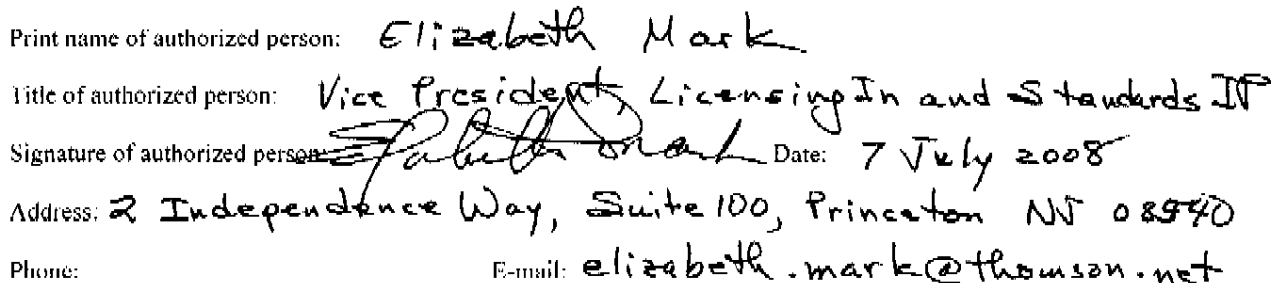 Print name of authorized person: Elizabeth Mark
Title of authorized person: Vice President, Licensing In and Standards IP
Signature of authorized person: Elizabeth Mark Date: 7 July 2008
Address: 2 Independence Way, Suite 100, Princeton NJ 08540
Phone: E-mail: elizabeth.mark@thomson.net